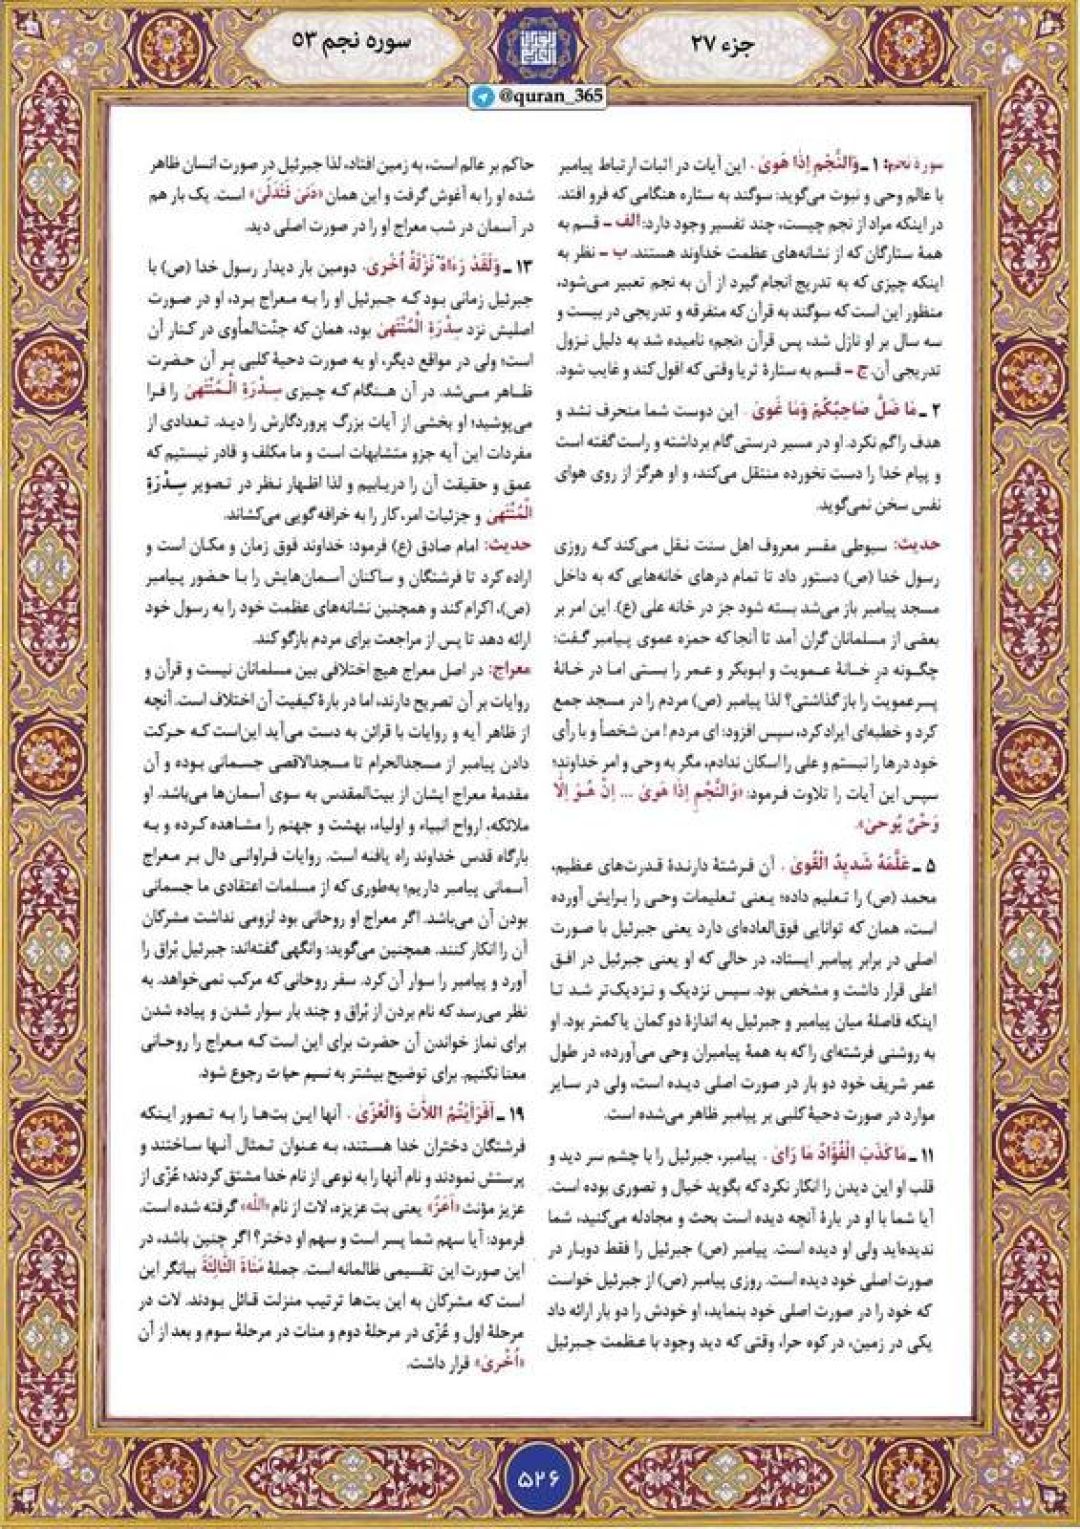 جزء ۲۷
سوره نجم ۵۳
@quran_365
سورهٔ نجم: ۱ ـ وَالنَّجْمِ اِذٰا هَویٰ . این آیات در اثبات ارتباط پیامبر
با عالم وحی و نبوت می‌گوید: سوگند به ستاره هنگامی که فرو افتد.
در اینکه مراد از نجم چیست، چند تفسیر وجود دارد: الف ـ قسم به
همهٔ ستارگان که از نشانه‌های عظمت خداوند هستند. ب ـ نظر به
اینکه چیزی که به تدریج انجام گیرد از آن به نجم تعبیر می‌شود،
منظور این است که سوگند به قرآن که متفرقه و تدریجی در بیست و
سه سال بر او نازل شد، پس قرآن «نجم» نامیده شد به دلیل نزول
تدریجی آن. ج ـ قسم به ستارهٔ ثریا وقتی که افول کند و غایب شود.
۲ ـ مٰا ضَلَّ صٰاحِبُکُمْ وَمٰا غَویٰ . این دوست شما منحرف نشد و
هدف را گم نکرد. او در مسیر درستی گام برداشته و راست گفته است
و پیام خدا را دست نخورده منتقل می‌کند، و او هرگز از روی هوای
نفس سخن نمی‌گوید.
حدیث: سیوطی مفسر معروف اهل سنت نقل می‌کند که روزی
رسول خدا (ص) دستور داد تا تمام درهای خانه‌هایی که به داخل
مسجد پیامبر باز می‌شد بسته شود جز در خانه علی (ع). این امر بر
بعضی از مسلمانان گران آمد تا آنجا که حمزه عموی پیامبر گفت:
چگونه در خانهٔ عمویت و ابوبکر و عمر را بستی اما در خانهٔ
پسرعمویت را باز گذاشتی؟ لذا پیامبر (ص) مردم را در مسجد جمع
کرد و خطبه‌ای ایراد کرد، سپس افزود: ای مردم! من شخصاً و با رأی
خود درها را نبستم و علی را اسکان ندادم، مگر به وحی و امر خداوند؛
سپس این آیات را تلاوت فرمود: «وَالنَّجْمِ اِذٰا هَویٰ ... اِنْ هُـوَ اِلّٰا
وَحْیٌ یُوحیٰ».
۵ ـ عَلَّمَهُ شَدیدُ الْقُویٰ . آن فرشتهٔ دارندهٔ قدرت‌های عظیم،
محمد (ص) را تعلیم داده؛ یعنی تعلیمات وحی را برایش آورده
است، همان که توانایی فوق‌العاده‌ای دارد یعنی جبرئیل با صورت
اصلی در برابر پیامبر ایستاد، در حالی که او یعنی جبرئیل در افق
اعلی قرار داشت و مشخص بود. سپس نزدیک و نزدیک‌تر شد تا
اینکه فاصلهٔ میان پیامبر و جبرئیل به اندازهٔ دو کمان یا کمتر بود. او
به روشنی فرشته‌ای را که به همهٔ پیامبران وحی می‌آورده، در طول
عمر شریف خود دو بار در صورت اصلی دیده است، ولی در سایر
موارد در صورت دحیهٔ کلبی بر پیامبر ظاهر می‌شده است.
۱۱ ـ مٰا کَذَبَ الْفُؤٰادُ مٰا رَایٰ . پیامبر، جبرئیل را با چشم سر دید و
قلب او این دیدن را انکار نکرد که بگوید خیال و تصوری بوده است.
آیا شما با او در بارهٔ آنچه دیده است بحث و مجادله می‌کنید، شما
ندیده‌اید ولی او دیده است. پیامبر (ص) جبرئیل را فقط دوبار در
صورت اصلی خود دیده است. روزی پیامبر (ص) از جبرئیل خواست
که خود را در صورت اصلی خود بنماید، او خودش را دو بار ارائه داد
یکی در زمین، در کوه حرا، وقتی که دید وجود با عظمت جبرئیل
حاکم بر عالم است، به زمین افتاد، لذا جبرئیل در صورت انسان ظاهر
شده او را به آغوش گرفت و این همان «دَنیٰ فَتَدَلّیٰ» است. یک بار هم
در آسمان در شب معراج او را در صورت اصلی دید.
۱۳ ـ وَلَقَدْ رَءٰاهُ نَزْلَةً اُخْریٰ. دومین بار دیدار رسول خدا (ص) با
جبرئیل زمانی بود که جبرئیل او را به معراج برد، او در صورت
اصلیش نزد سِدْرَةِ الْمُنْتَهیٰ بود، همان که جنّت‌المأوی در کنار آن
است؛ ولی در مواقع دیگر، او به صورت دحیهٔ کلبی بر آن حضرت
ظاهر می‌شد. در آن هنگام که چیزی سِدْرَةِ الْمُنْتَهیٰ را فرا
می‌پوشید؛ او بخشی از آیات بزرگ پروردگارش را دید. تعدادی از
مفردات این آیه جزو متشابهات است و ما مکلف و قادر نیستیم که
عمق و حقیقت آن را دریابیم و لذا اظهار نظر در تصویر سِدْرَةِ
الْمُنْتَهیٰ و جزئیات امر، کار را به خرافه‌گویی می‌کشاند.
حدیث: امام صادق (ع) فرمود: خداوند فوق زمان و مکان است و
اراده کرد تا فرشتگان و ساکنان آسمان‌هایش را با حضور پیامبر
(ص)، اکرام کند و همچنین نشانه‌های عظمت خود را به رسول خود
ارائه دهد تا پس از مراجعت برای مردم بازگو کند.
معراج: در اصل معراج هیچ اختلافی بین مسلمانان نیست و قرآن و
روایات بر آن تصریح دارند، اما در بارهٔ کیفیت آن اختلاف است. آنچه
از ظاهر آیه و روایات با قرائن به دست می‌آید این‌است که حرکت
دادن پیامبر از مسجدالحرام تا مسجدالاقصی جسمانی بوده و آن
مقدمهٔ معراج ایشان از بیت‌المقدس به سوی آسمان‌ها می‌باشد. او
ملائکه، ارواح انبیاء و اولیاء، بهشت و جهنم را مشاهده کرده و به
بارگاه قدس خداوند راه یافته است. روایات فراوانی دال بر معراج
آسمانی پیامبر داریم؛ به‌طوری که از مسلمات اعتقادی ما جسمانی
بودن آن می‌باشد. اگر معراج او روحانی بود لزومی نداشت مشرکان
آن را انکار کنند. همچنین می‌گوید: وانگهی گفته‌اند: جبرئیل بُراق را
آورد و پیامبر را سوار آن کرد. سفر روحانی که مرکب نمی‌خواهد. به
نظر می‌رسد که نام بردن از بُراق و چند بار سوار شدن و پیاده شدن
برای نماز خواندن آن حضرت برای این است که معراج را روحانی
معنا نکنیم. برای توضیح بیشتر به نسیم حیات رجوع شود.
۱۹ ـ اَفَرَاَیْتُمُ اللّٰاتَ وَالْعُزّیٰ . آنها این بت‌ها را به تصور اینکه
فرشتگان دختران خدا هستند، به عنوان تمثال آنها ساختند و
پرستش نمودند و نام آنها را به نوعی از نام خدا مشتق کردند؛ عُزّی از
عزیز مؤنث «اَعَزّ» یعنی بت عزیزه، لات از نام «الله» گرفته شده است.
فرمود: آیا سهم شما پسر است و سهم او دختر؟ اگر چنین باشد، در
این صورت این تقسیمی ظالمانه است. جملهٔ مَنٰاةَ الثّٰالِثَةَ بیانگر این
است که مشرکان به این بت‌ها ترتیب منزلت قائل بودند. لات در
مرحلهٔ اول و عُزّی در مرحلهٔ دوم و منات در مرحلهٔ سوم و بعد از آن
«اُخْریٰ» قرار داشت.
۵۲۶